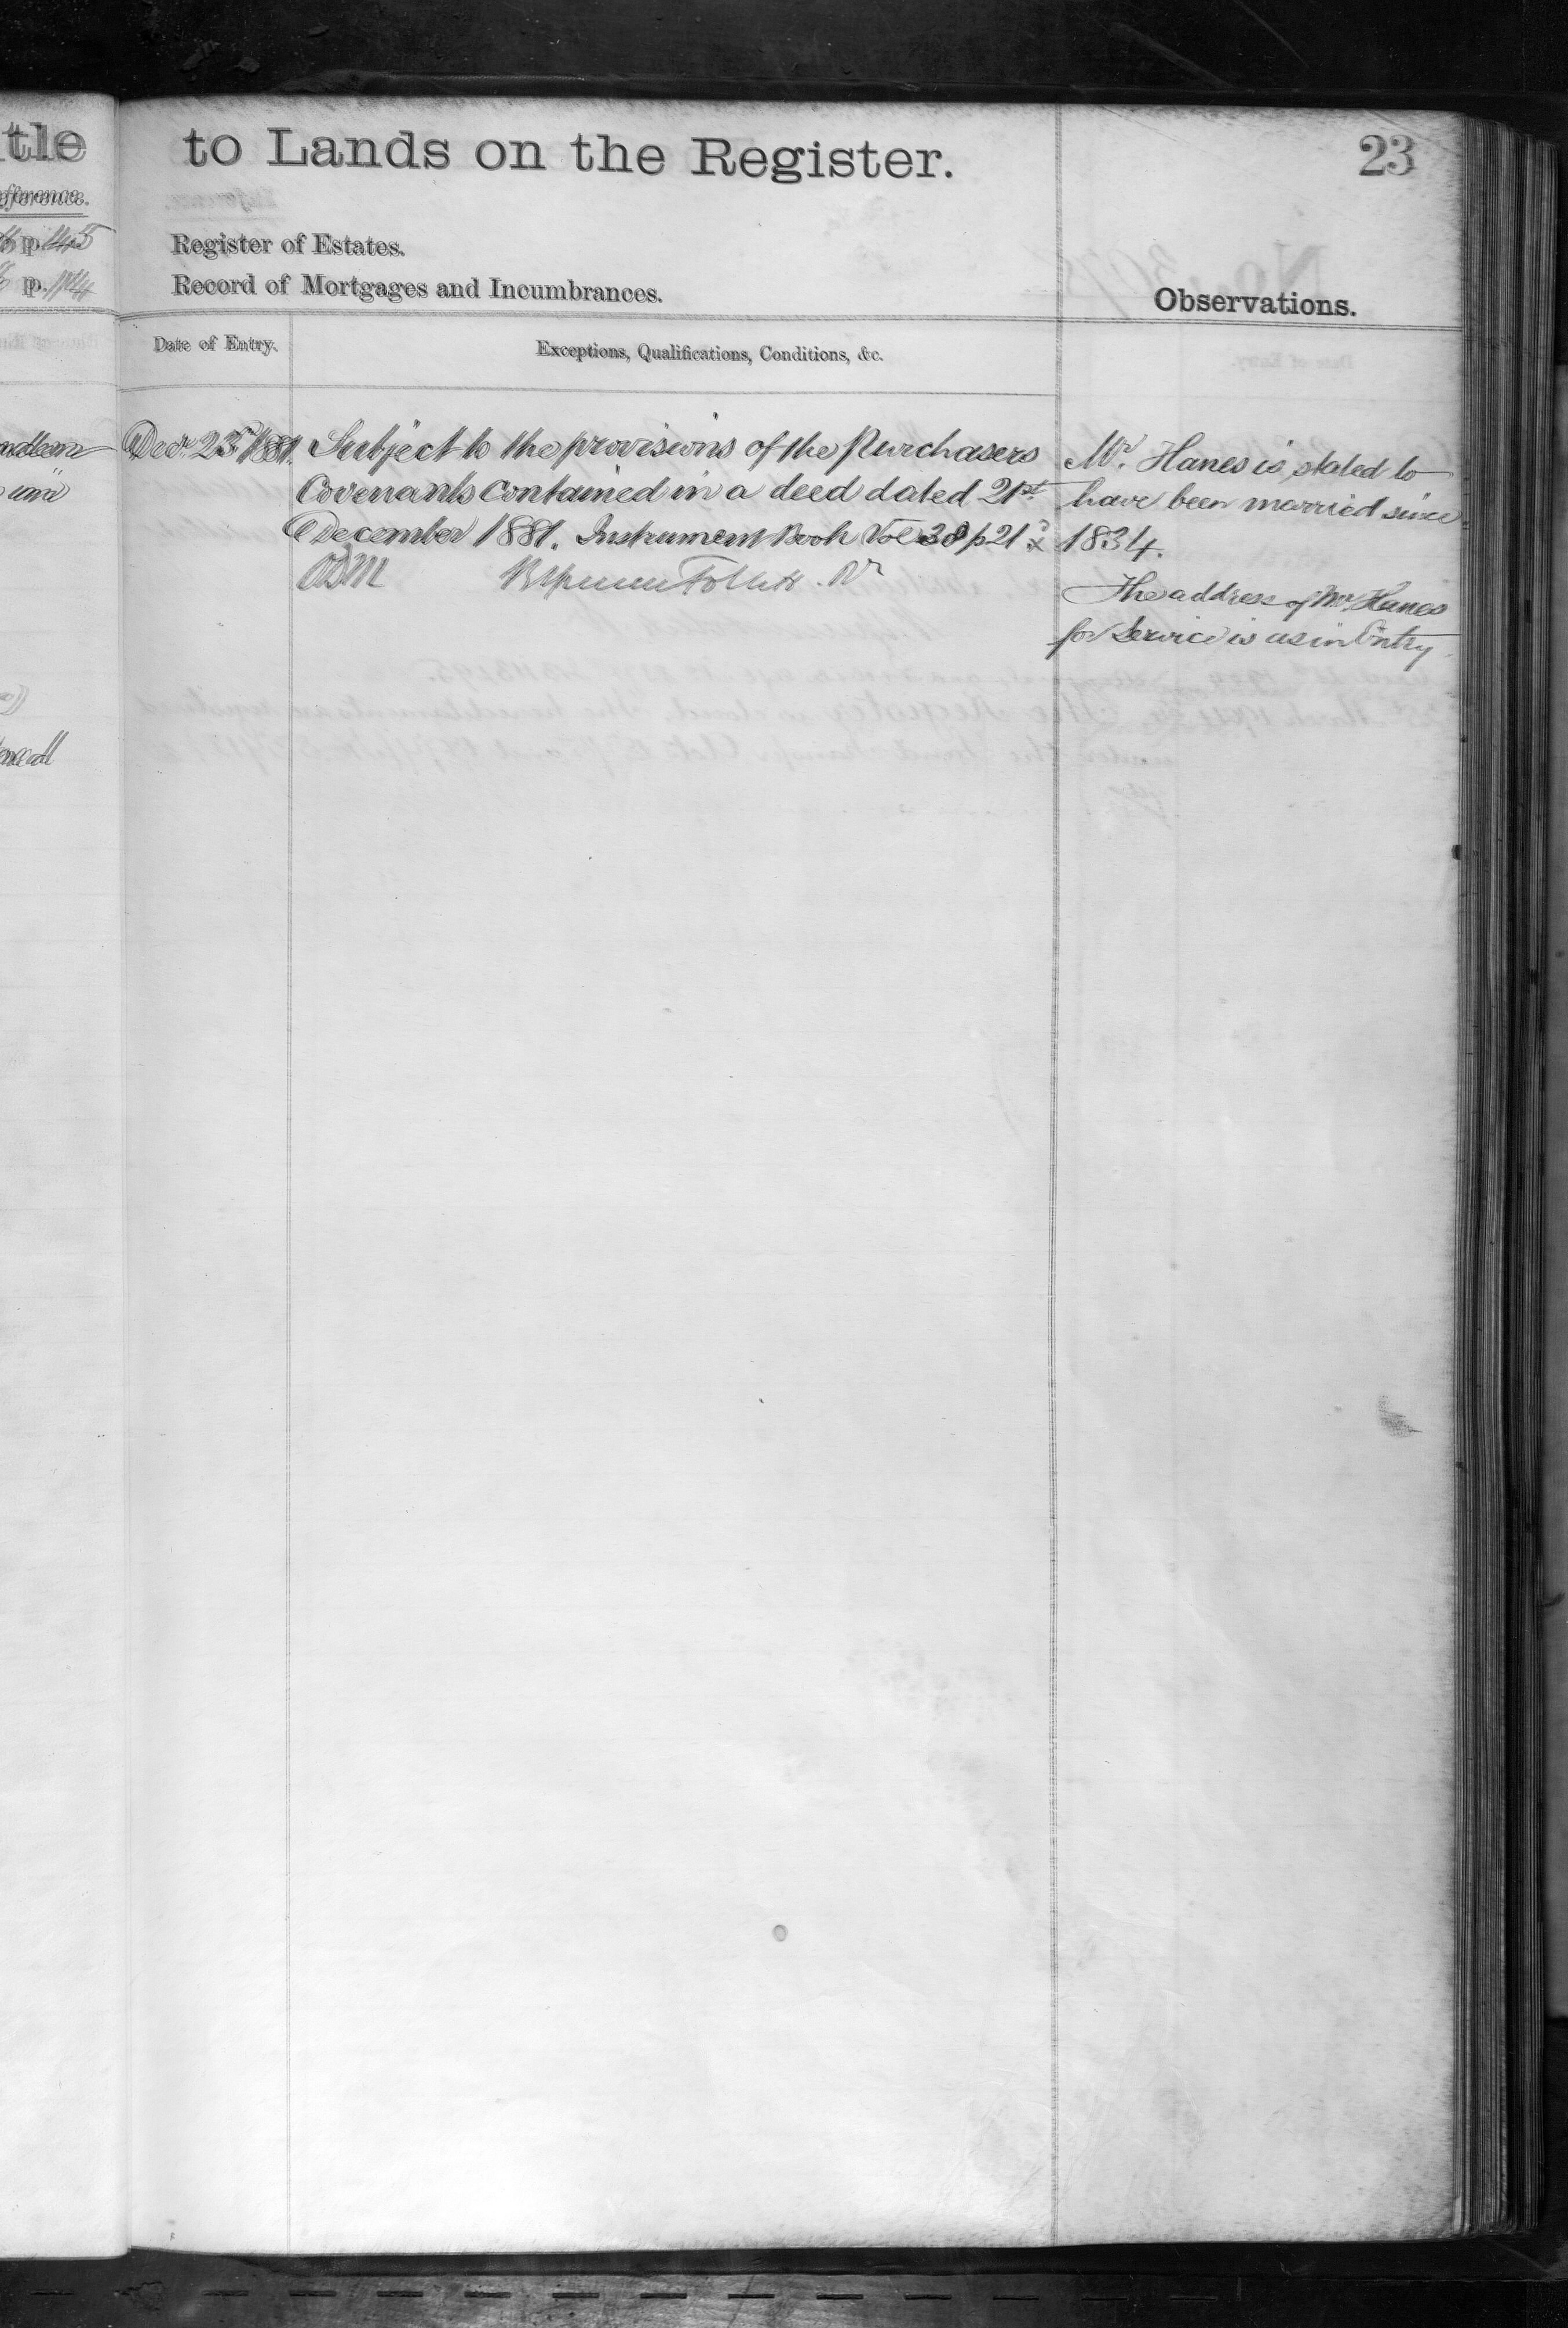 tle
to Lands on the Register.
23
p. 145
p. 114
Register of Estates.
Record of Mortgages and Incumbrances.
Observations.
Date of Entry.
Exceptions, Qualifications, Conditions, &c.
Decr. 23rd 1881. Subject to the provisions of the Purchasers
Covenants contained in a deed dated 21st
December 1881. Instrument Book Vol 38 p 21
Mr. Hanes is stated to
have been married since
1834.
The address of Mr Hanes
for Service is as in Entry